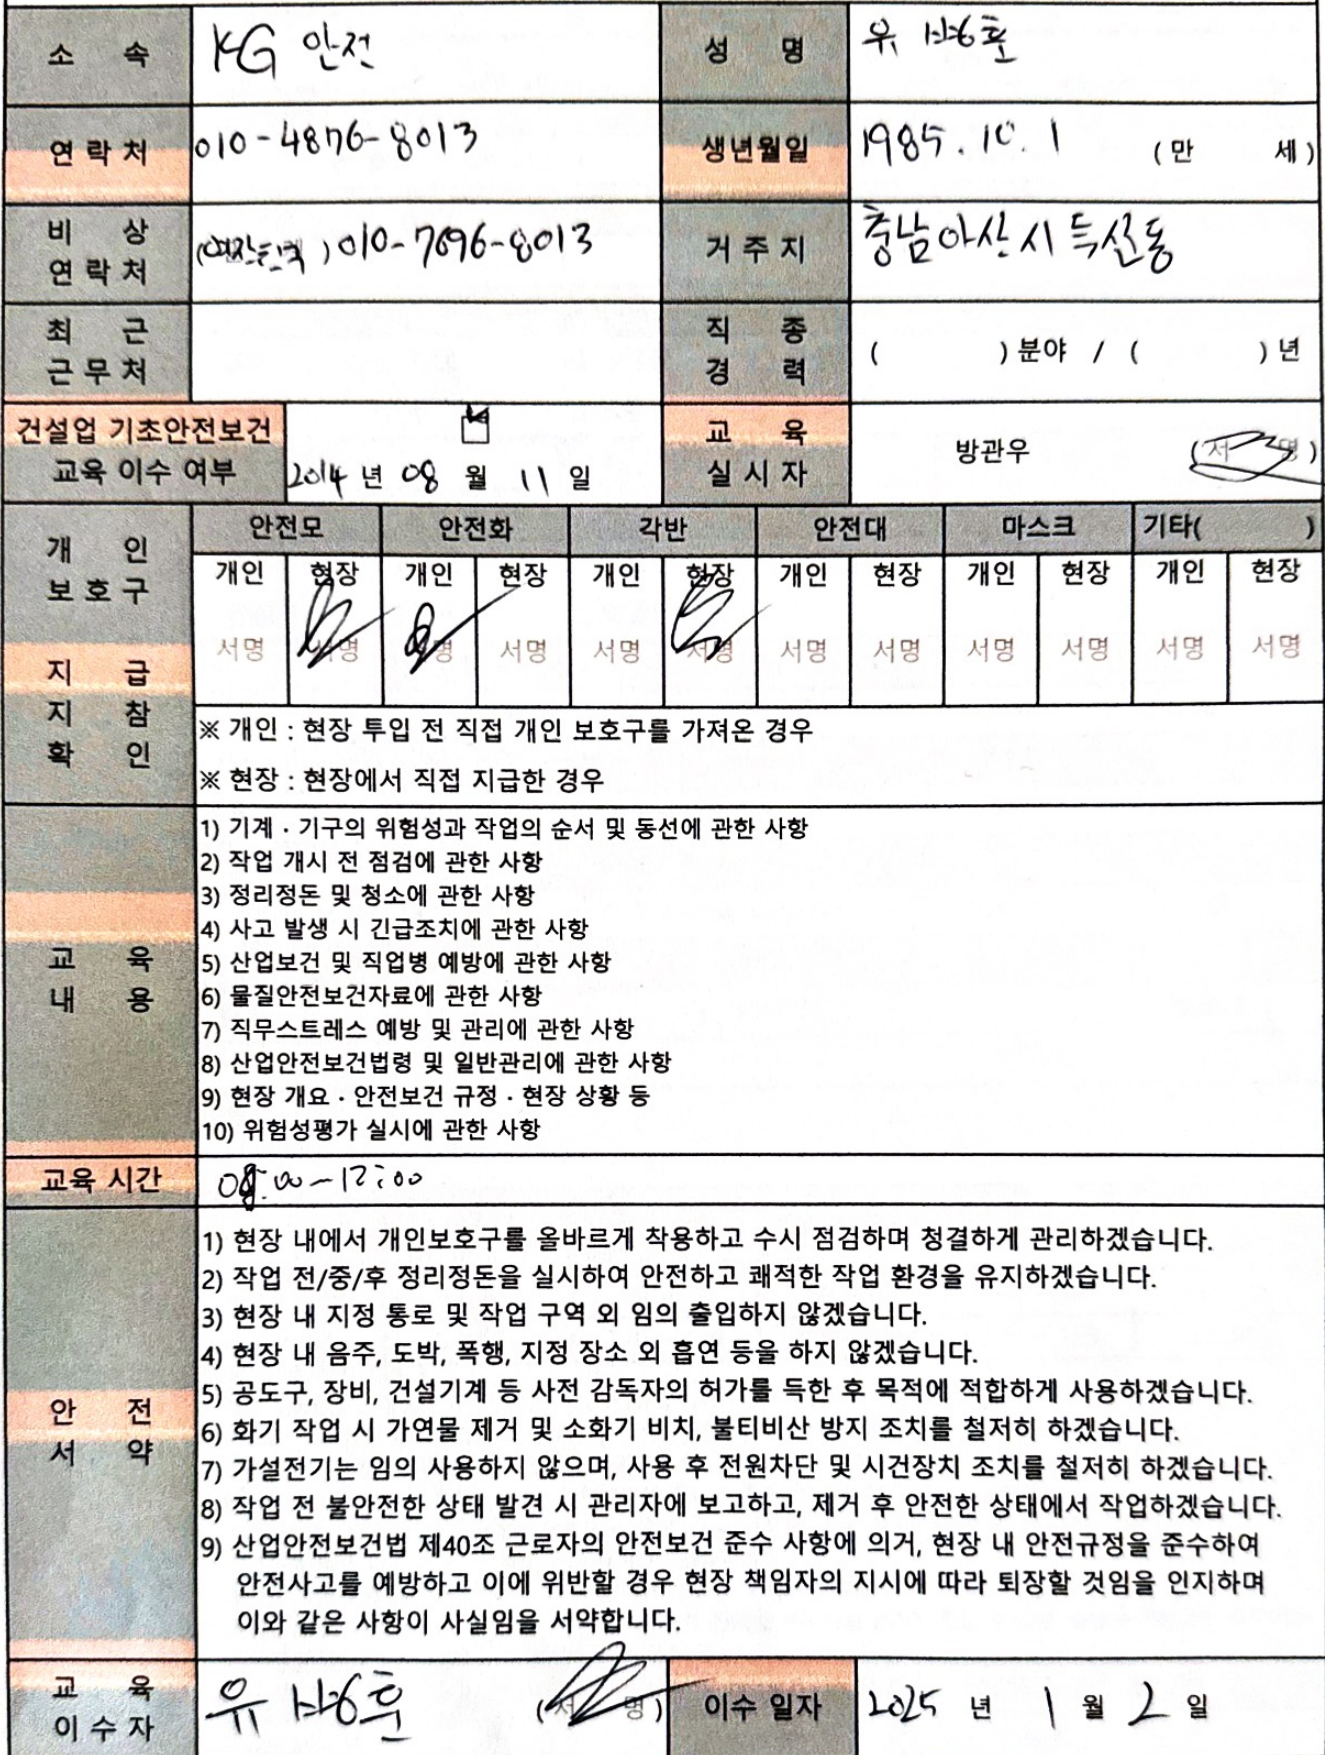 소 속 KG 안전 성 명 유
연락처 010-4876-8013 생년월일 1985.10.1 (만 세)
비 상
연락처 ) 010-7696-8013 거주지 충남 아산시 득산동
최 근
근무처
직 종
경 력 ( ) 분야 / ( ) 년
건설업 기초안전보건
교육 이수 여부 2014 년 08 월 11 일
교 육
실시자 방관우 (서명)
개 인
보호구
지 급
지 참
확 인
안전모 안전화 각반 안전대 마스크 기타( )
개인 현장 개인 현장 개인 현장 개인 현장 개인 현장 개인 현장
서명 서명 서명 서명 서명 서명 서명 서명 서명 서명 서명 서명
※ 개인 : 현장 투입 전 직접 개인 보호구를 가져온 경우
※ 현장 : 현장에서 직접 지급한 경우
교 육
내 용
1) 기계 · 기구의 위험성과 작업의 순서 및 동선에 관한 사항
2) 작업 개시 전 점검에 관한 사항
3) 정리정돈 및 청소에 관한 사항
4) 사고 발생 시 긴급조치에 관한 사항
5) 산업보건 및 직업병 예방에 관한 사항
6) 물질안전보건자료에 관한 사항
7) 직무스트레스 예방 및 관리에 관한 사항
8) 산업안전보건법령 및 일반관리에 관한 사항
9) 현장 개요 · 안전보건 규정 · 현장 상황 등
10) 위험성평가 실시에 관한 사항
교육 시간 08:00~12:00
안 전
서 약
1) 현장 내에서 개인보호구를 올바르게 착용하고 수시 점검하며 청결하게 관리하겠습니다.
2) 작업 전/중/후 정리정돈을 실시하여 안전하고 쾌적한 작업 환경을 유지하겠습니다.
3) 현장 내 지정 통로 및 작업 구역 외 임의 출입하지 않겠습니다.
4) 현장 내 음주, 도박, 폭행, 지정 장소 외 흡연 등을 하지 않겠습니다.
5) 공도구, 장비, 건설기계 등 사전 감독자의 허가를 득한 후 목적에 적합하게 사용하겠습니다.
6) 화기 작업 시 가연물 제거 및 소화기 비치, 불티비산 방지 조치를 철저히 하겠습니다.
7) 가설전기는 임의 사용하지 않으며, 사용 후 전원차단 및 시건장치 조치를 철저히 하겠습니다.
8) 작업 전 불안전한 상태 발견 시 관리자에 보고하고, 제거 후 안전한 상태에서 작업하겠습니다.
9) 산업안전보건법 제40조 근로자의 안전보건 준수 사항에 의거, 현장 내 안전규정을 준수하여
안전사고를 예방하고 이에 위반할 경우 현장 책임자의 지시에 따라 퇴장할 것임을 인지하며
이와 같은 사항이 사실임을 서약합니다.
교 육
이수자 유 (서 명) 이수 일자 2025 년 1 월 2 일